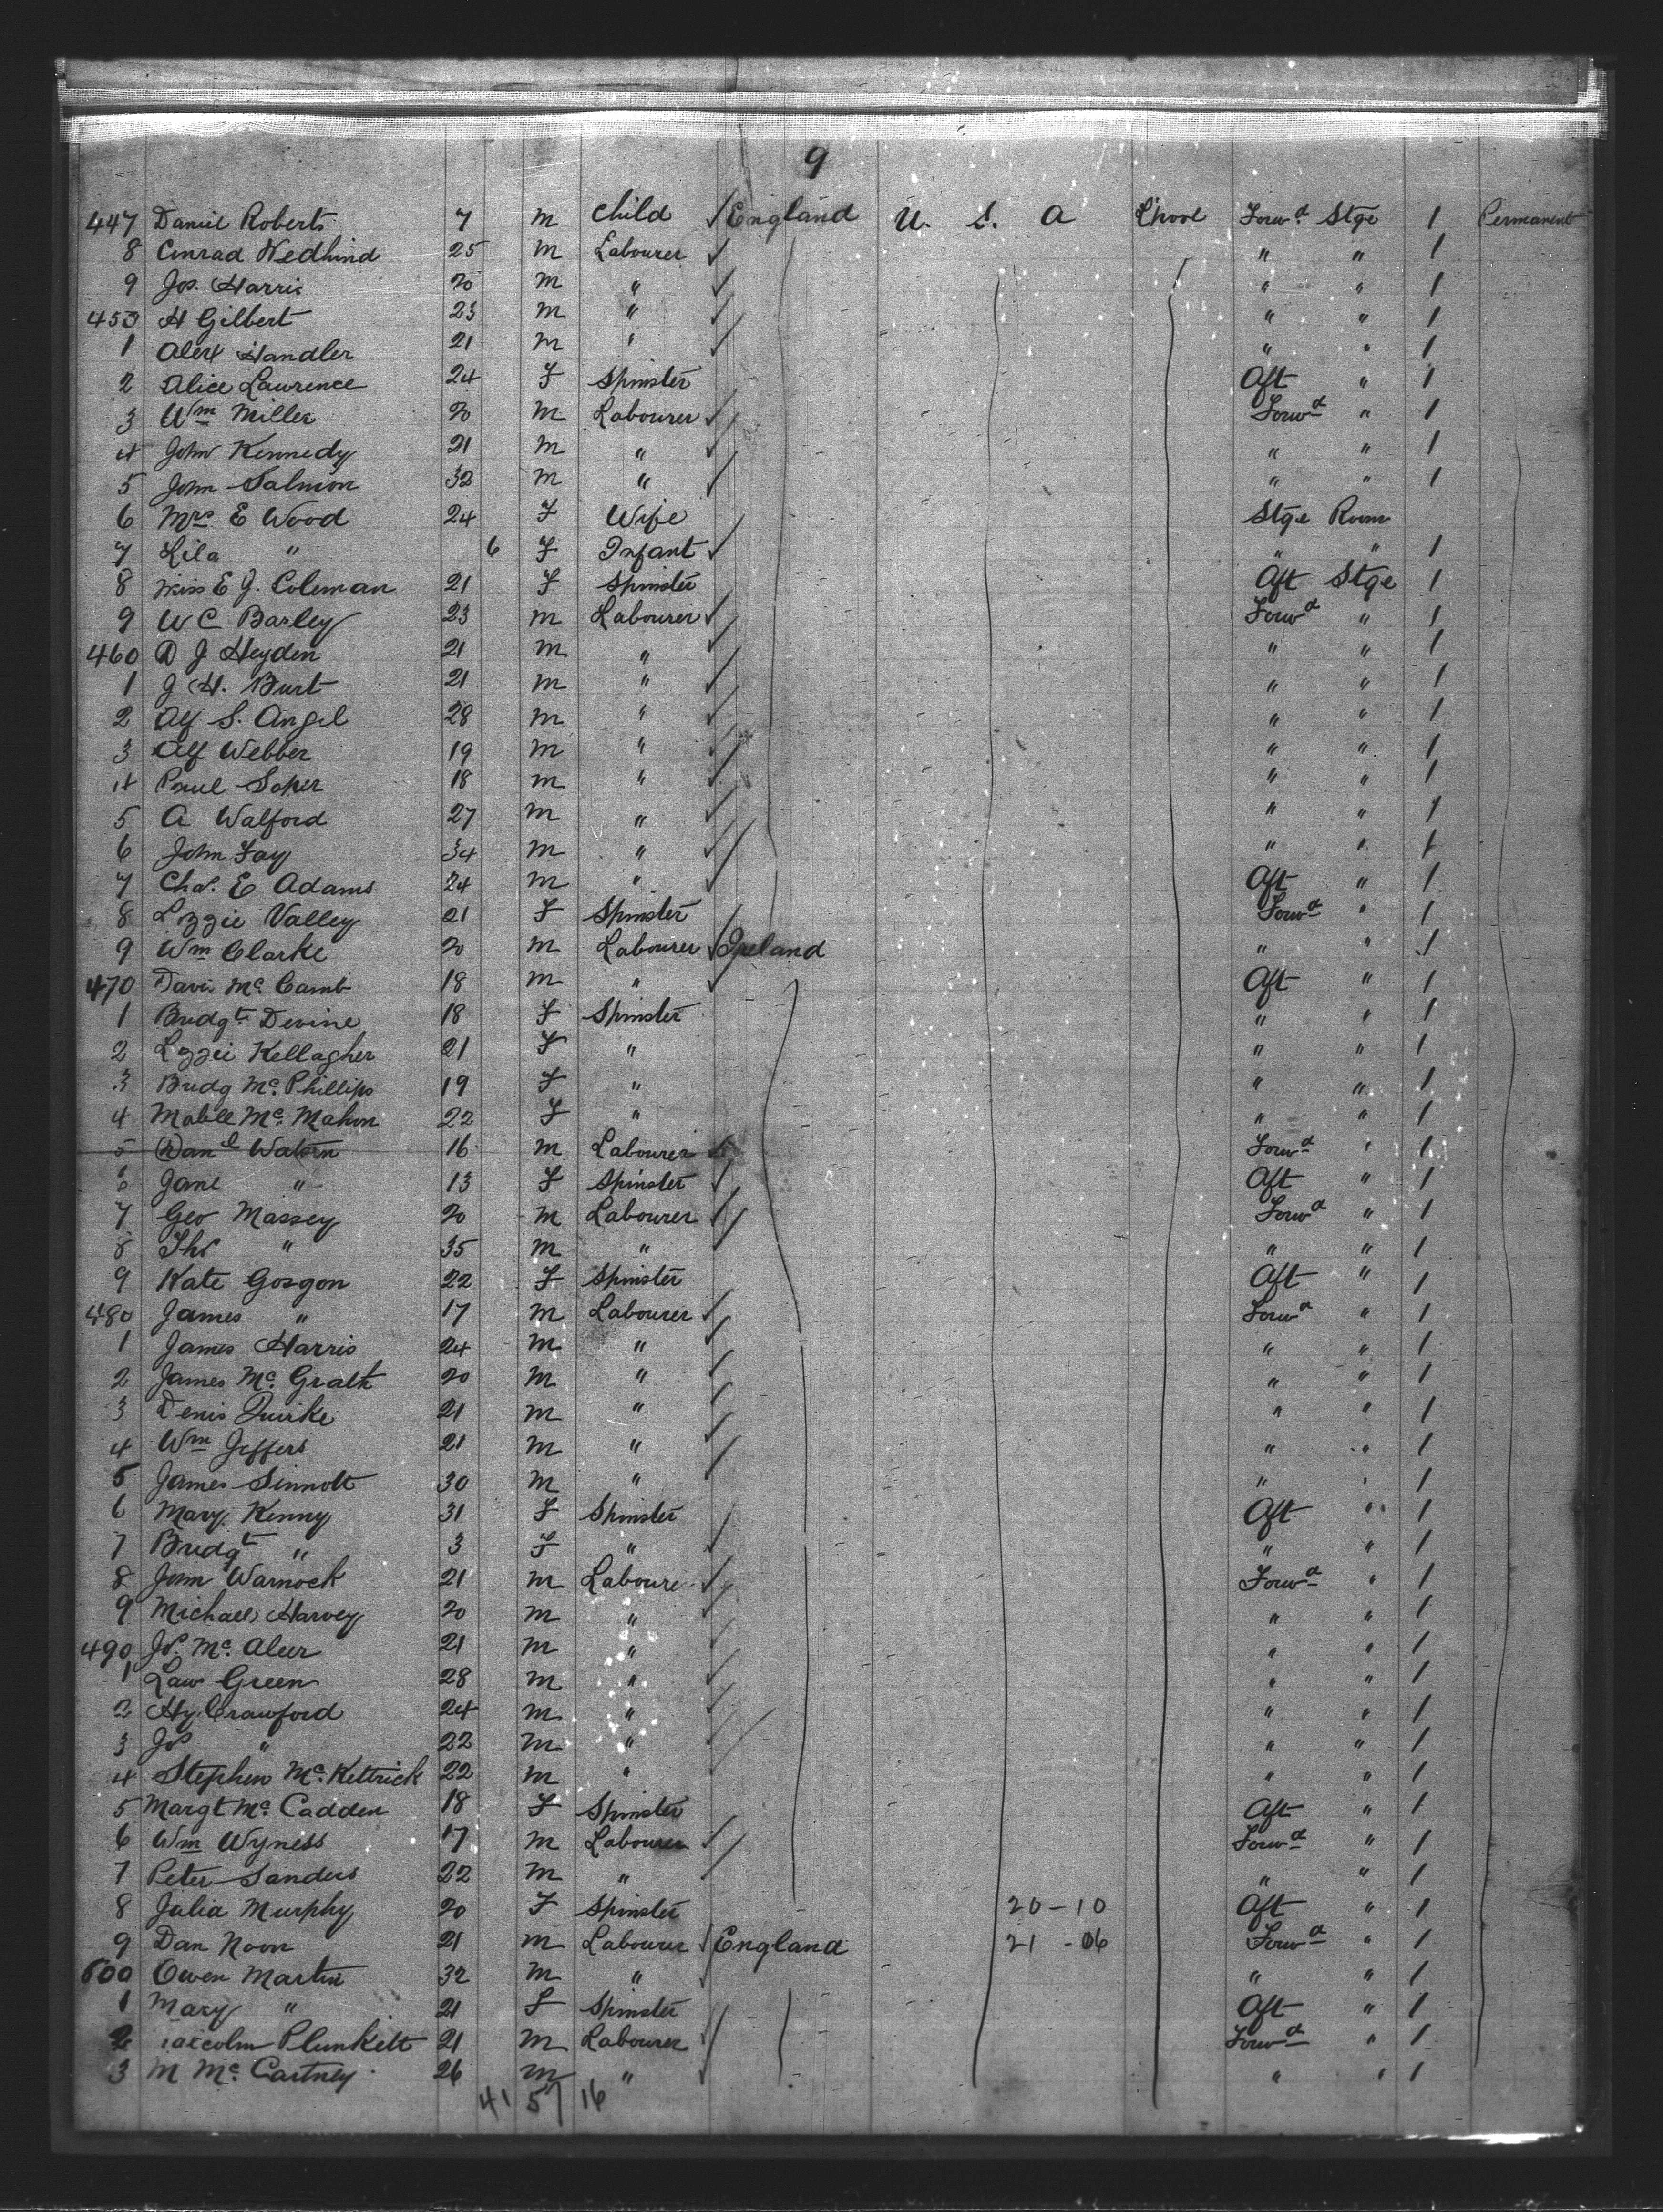 9
447 Daniel Roberts 7 m Child ✓ England U. S. A L'pool Forwd Stge 1 Permanent
8 Conrad Wedhind 25 m Labourer ✓ " " 1
9 Jos. Harris 20 m " ✓ " " 1
450 H Gilbert 23 m " ✓ " " 1
1 Alex Handler 21 m " ✓ " " 1
2 Alice Lawrence 24 F Spinster Aft " 1
3 Wm Miller 20 m Labourer ✓ Forwd " 1
4 John Kennedy 21 m " ✓ " " 1
5 John Salmon 32 m " ✓ " " 1
6 Mrs E Wood 24 F Wife Stge Room
7 Lila " 6 F Infant ✓ " " 1
8 Miss E J. Coleman 21 F Spinster Aft Stge 1
9 W C Barley 23 m Labourer ✓ Forwd " 1
460 D J Heyden 21 m " ✓ " " 1
1 J H. Burt 21 m " ✓ " " 1
2 Alf S. Angel 28 m " ✓ " " 1
3 Alf Webber 19 m " ✓ " " 1
4 Paul Soper 18 m " ✓ " " 1
5 A Walford 27 m " ✓ " " 1
6 John Fay 34 m " ✓ " " 1
7 Chas. E Adams 24 m " ✓ Aft " 1
8 Lizzie Valley 21 F Spinster Forwd " 1
9 Wm Clarke 20 m Labourer ✓ Ireland " " 1
470 Davis Mc Camb 18 m " ✓ Aft " 1
1 Bridgt Devine 18 F Spinster " " 1
2 Lizzie Kellagher 21 F " " " 1
3 Bridg Mc Phillips 19 F " " " 1
4 Mabell Mc Mahon 22 F " " " 1
5 Danl Watson 16 m Labourer Forwd " 1
6 Jane " 13 F Spinster ✓ Aft " 1
7 Geo Massey 20 m Labourer ✓ Forwd " 1
8 Thos " 35 m " ✓ " " 1
9 Kate Gosgon 22 F Spinster Aft " 1
480 James " 17 m Labourer ✓ Forwd " 1
1 James Harris 24 m " ✓ " " 1
2 James Mc Grath 20 m " ✓ " " 1
3 Denis Quirke 21 m " ✓ " " 1
4 Wm Jeffers 21 m " ✓ " " 1
5 James Sinnott 30 m " ✓ " " 1
6 Mary Kenny 31 F Spinster Aft " 1
7 Bridgt " 3 F " ✓ " " 1
8 John Warnock 21 m Laboure ✓ Forwd " 1
9 Michael Harvey 20 m " ✓ " " 1
490 Js. Mc Aleer 21 m " ✓ " " 1
1 Law Green 28 m " ✓ " " 1
2 Hy Crawford 24 m " ✓ " " 1
3 Js " 22 m " ✓ " " 1
4 Stephen Mc Kettrick 22 m " ✓ " " 1
5 Margt Mc Cadden 18 F Spinster Aft " 1
6 Wm Wyness 17 m Labourer ✓ Forwd " 1
7 Peter Sanders 22 m " ✓ " " 1
8 Julia Murphy 20 F Spinster 20-10 Aft " 1
9 Dan Noon 21 m Labourer ✓ England 21-06 Forwd " 1
500 Owen Martin 32 m " ✓ " " 1
1 Mary " 21 F Spinster Aft " 1
2 alcolm Plunkett 21 m Labourer ✓ Forwd " 1
3 M Mc Cartney 26 m " ✓ " " 1
41 57 16